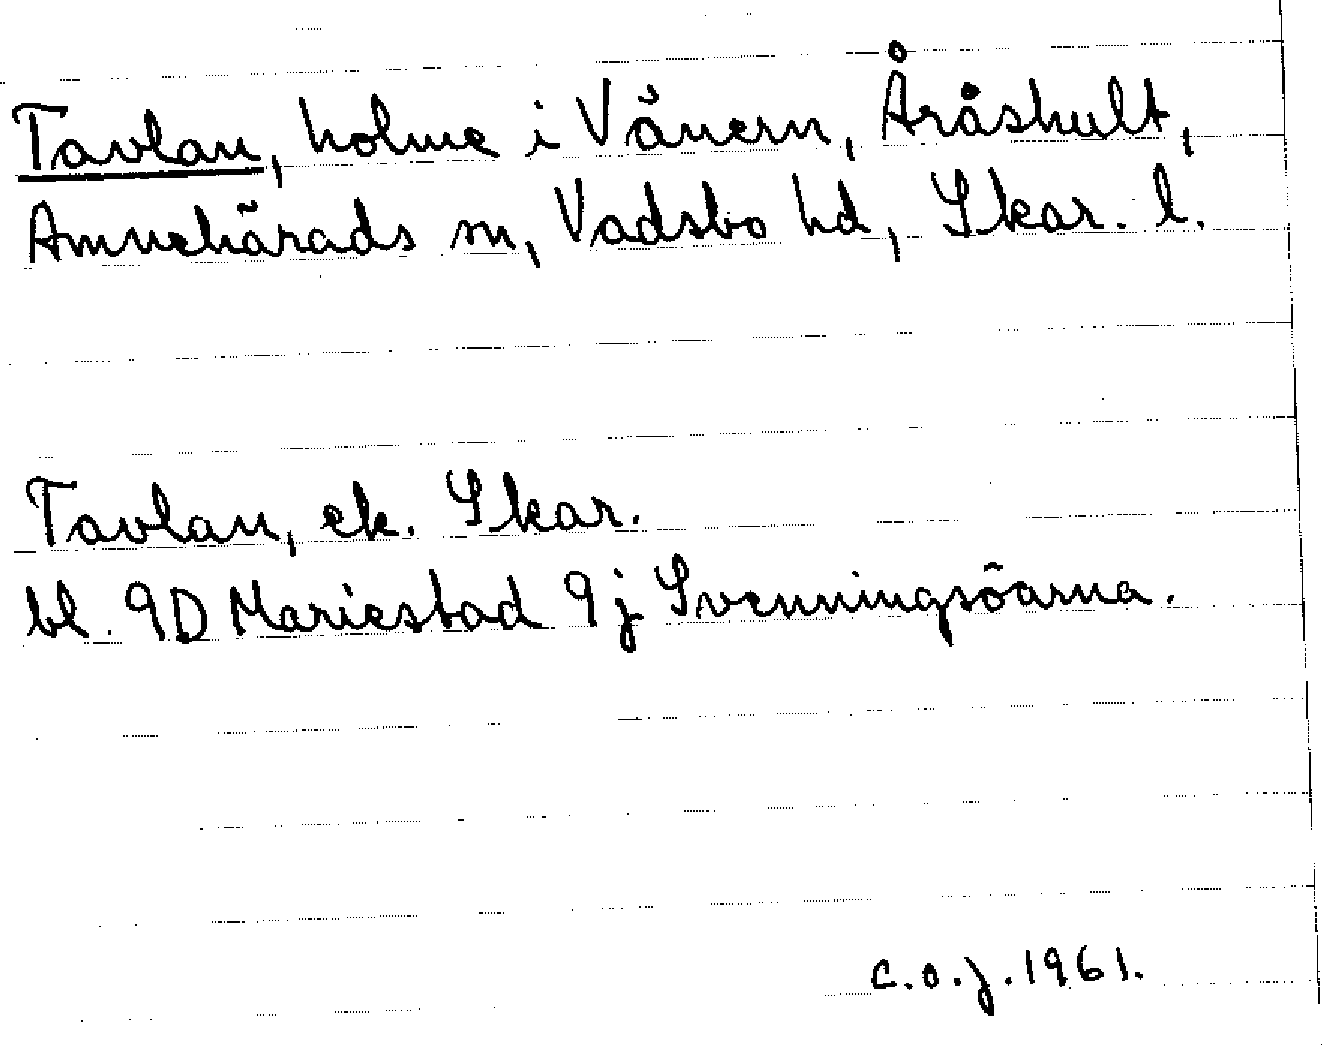 Tavlan, holme i Vänern, Åråshult,
Amnehärads sn, Vadsbo hd, Skar. l.
Tavlan, ek. Skar.
bl. 9D Mariestad 9j Svenningsöarna.
C.O.J. 1961.